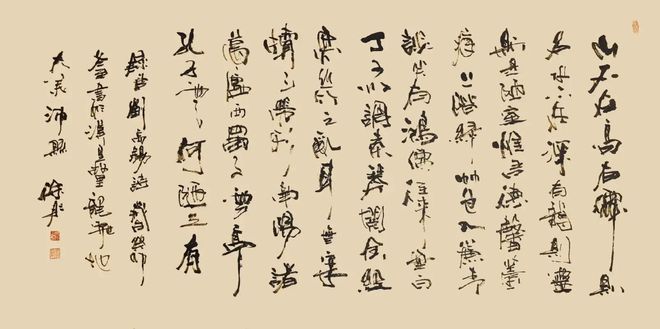 山不在高有僊則
名水不在深有龍則靈
斯是陋室惟吾德馨苔
痕上階綠草色入簾青
談笑有鴻儒往來無白
丁可以調素琴閱金經
無絲竹之亂耳無案
牘之勞形南陽諸
葛廬西蜀子雲亭
孔子云何陋之有
錄唐劉禹錫
書於漢皇龍飛地
大美沛縣 徐